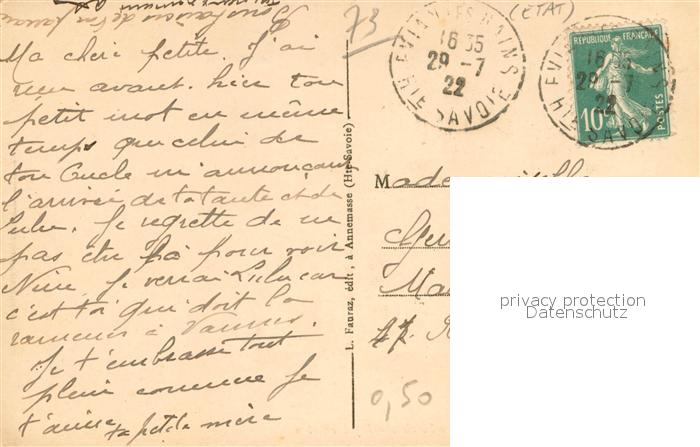 73
(ETAT)
EVIAN LES BAINS
16 35
29 - 7
22
HTE SAVOIE
REPUBLIQUE FRANÇAISE
10c
POSTES
Ma chère petite. J'ai
reçu avant-hier ton
petit mot en même
temps que celui de
ton Oncle m'annonçant
l'arrivée de ta tante et de
Lulu. Je regrette de ne
pas être là pour voir
Nine. Je verrai Lulu car
c'est toi qui doit la
ramener à Vannes.
Je t'embrasse tout
plein comme je
t'aime ta petite mère
L. Fauraz, édit., à Annemasse (Hte-Savoie)
Made
Ma
47 R
0,50
privacy protection
Datenschutz